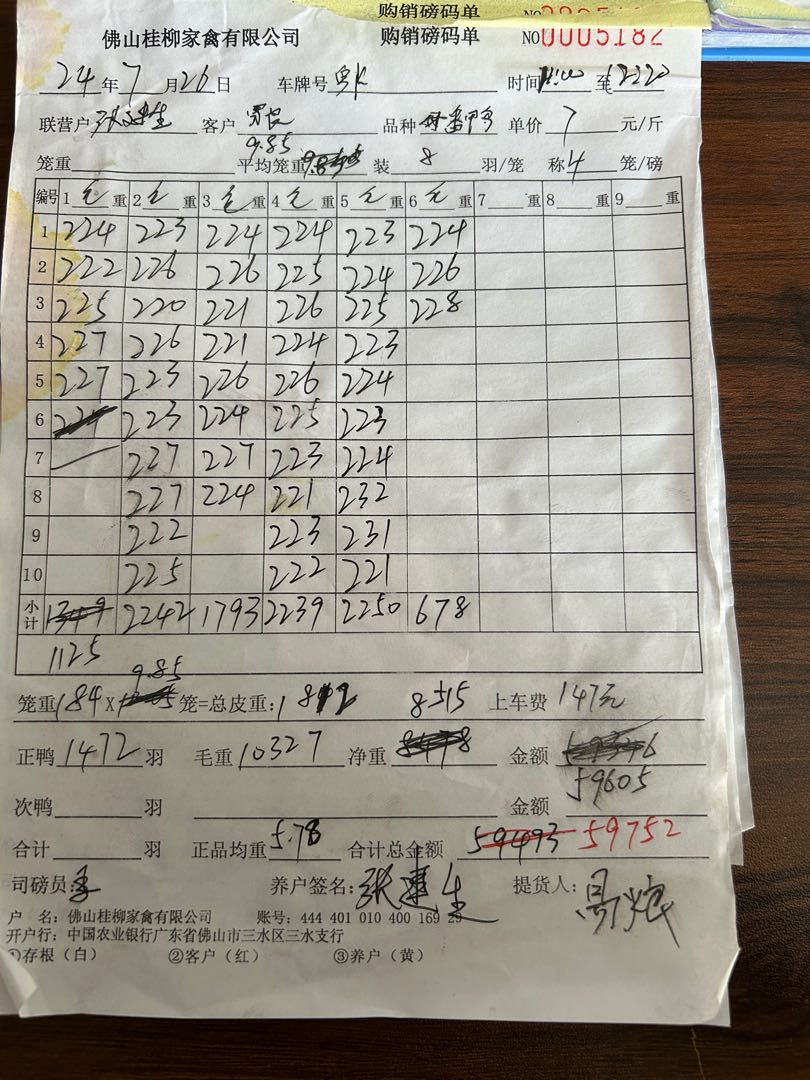 购销磅码单 NO
佛山桂柳家禽有限公司 购销磅码单 NO0005182
24年7月26日 车牌号 时间 至
联营户 张建生 客户 品种 单价 7 元/斤
9.85
笼重 平均笼重 装 8 羽/笼 称 4 笼/磅
编号 1 毛 重 2 毛 重 3 毛 重 4 毛 重 5 毛 重 6 毛 重 7 重 8 重 9 重
1 224 223 224 224 223 224
2 222 226 226 225 224 226
3 225 220 221 226 225 228
4 227 226 221 224 223
5 227 223 226 226 224
6 223 224 225 223
7 227 227 223 224
8 227 224 221 232
9 222 223 231
10 225 222 221
小计 1349 2242 1793 2239 2250 678
1125
9.85
笼重 184 X 笼=总皮重: 1812 8515 上车费 147元
正鸭 1472 羽 毛重 10327 净重 金额
59605
次鸭 羽 金额
合计 羽 正品均重 5.78 合计总金额 59493 59752
司磅员: 养户签名: 张建生 提货人:
户 名: 佛山桂柳家禽有限公司 账号: 444 401 010 400 169 29
开户行: 中国农业银行广东省佛山市三水区三水支行
①存根（白） ②客户（红） ③养户（黄）